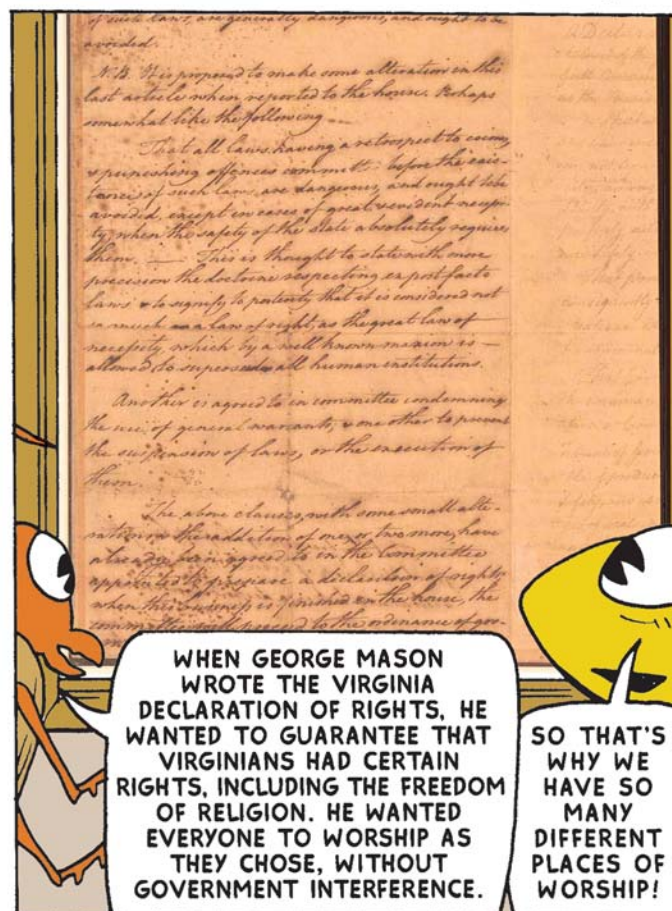 of such laws, are generally dangerous, and ought to be
avoided.
N.B. It is proposed to make some alteration in this
last article when reported to the house. Perhaps
somewhat like the following
That all laws having a retrospect to crimes,
& punishing offences committed before the exis-
tence of such laws, are dangerous, and ought to be
avoided, except in cases of great & evident necessi-
ty, when the safety of the state absolutely requires
them. This is thought to state with more
precision the doctrine respecting ex post facto
laws & to signify to posterity that it is considered not
so much as a law of right, as the great law of
necessity, which by a well known maxim is
allowed to supersede all human institutions.
Another is agreed to in committee condemning
the use of general warrants; & one other to prevent
the suspension of laws, or the execution of
them.
The above clauses, with some small alte-
rations, & the addition of one, or two more, have
already been agreed to in the Committee
appointed to prepare a declaration of rights;
when this business is finished in the house, the
committee will proceed to the ordinance of gov-
WHEN GEORGE MASON
WROTE THE VIRGINIA
DECLARATION OF RIGHTS, HE
WANTED TO GUARANTEE THAT
VIRGINIANS HAD CERTAIN
RIGHTS, INCLUDING THE FREEDOM
OF RELIGION. HE WANTED
EVERYONE TO WORSHIP AS
THEY CHOSE, WITHOUT
GOVERNMENT INTERFERENCE.
SO THAT'S
WHY WE
HAVE SO
MANY
DIFFERENT
PLACES OF
WORSHIP!